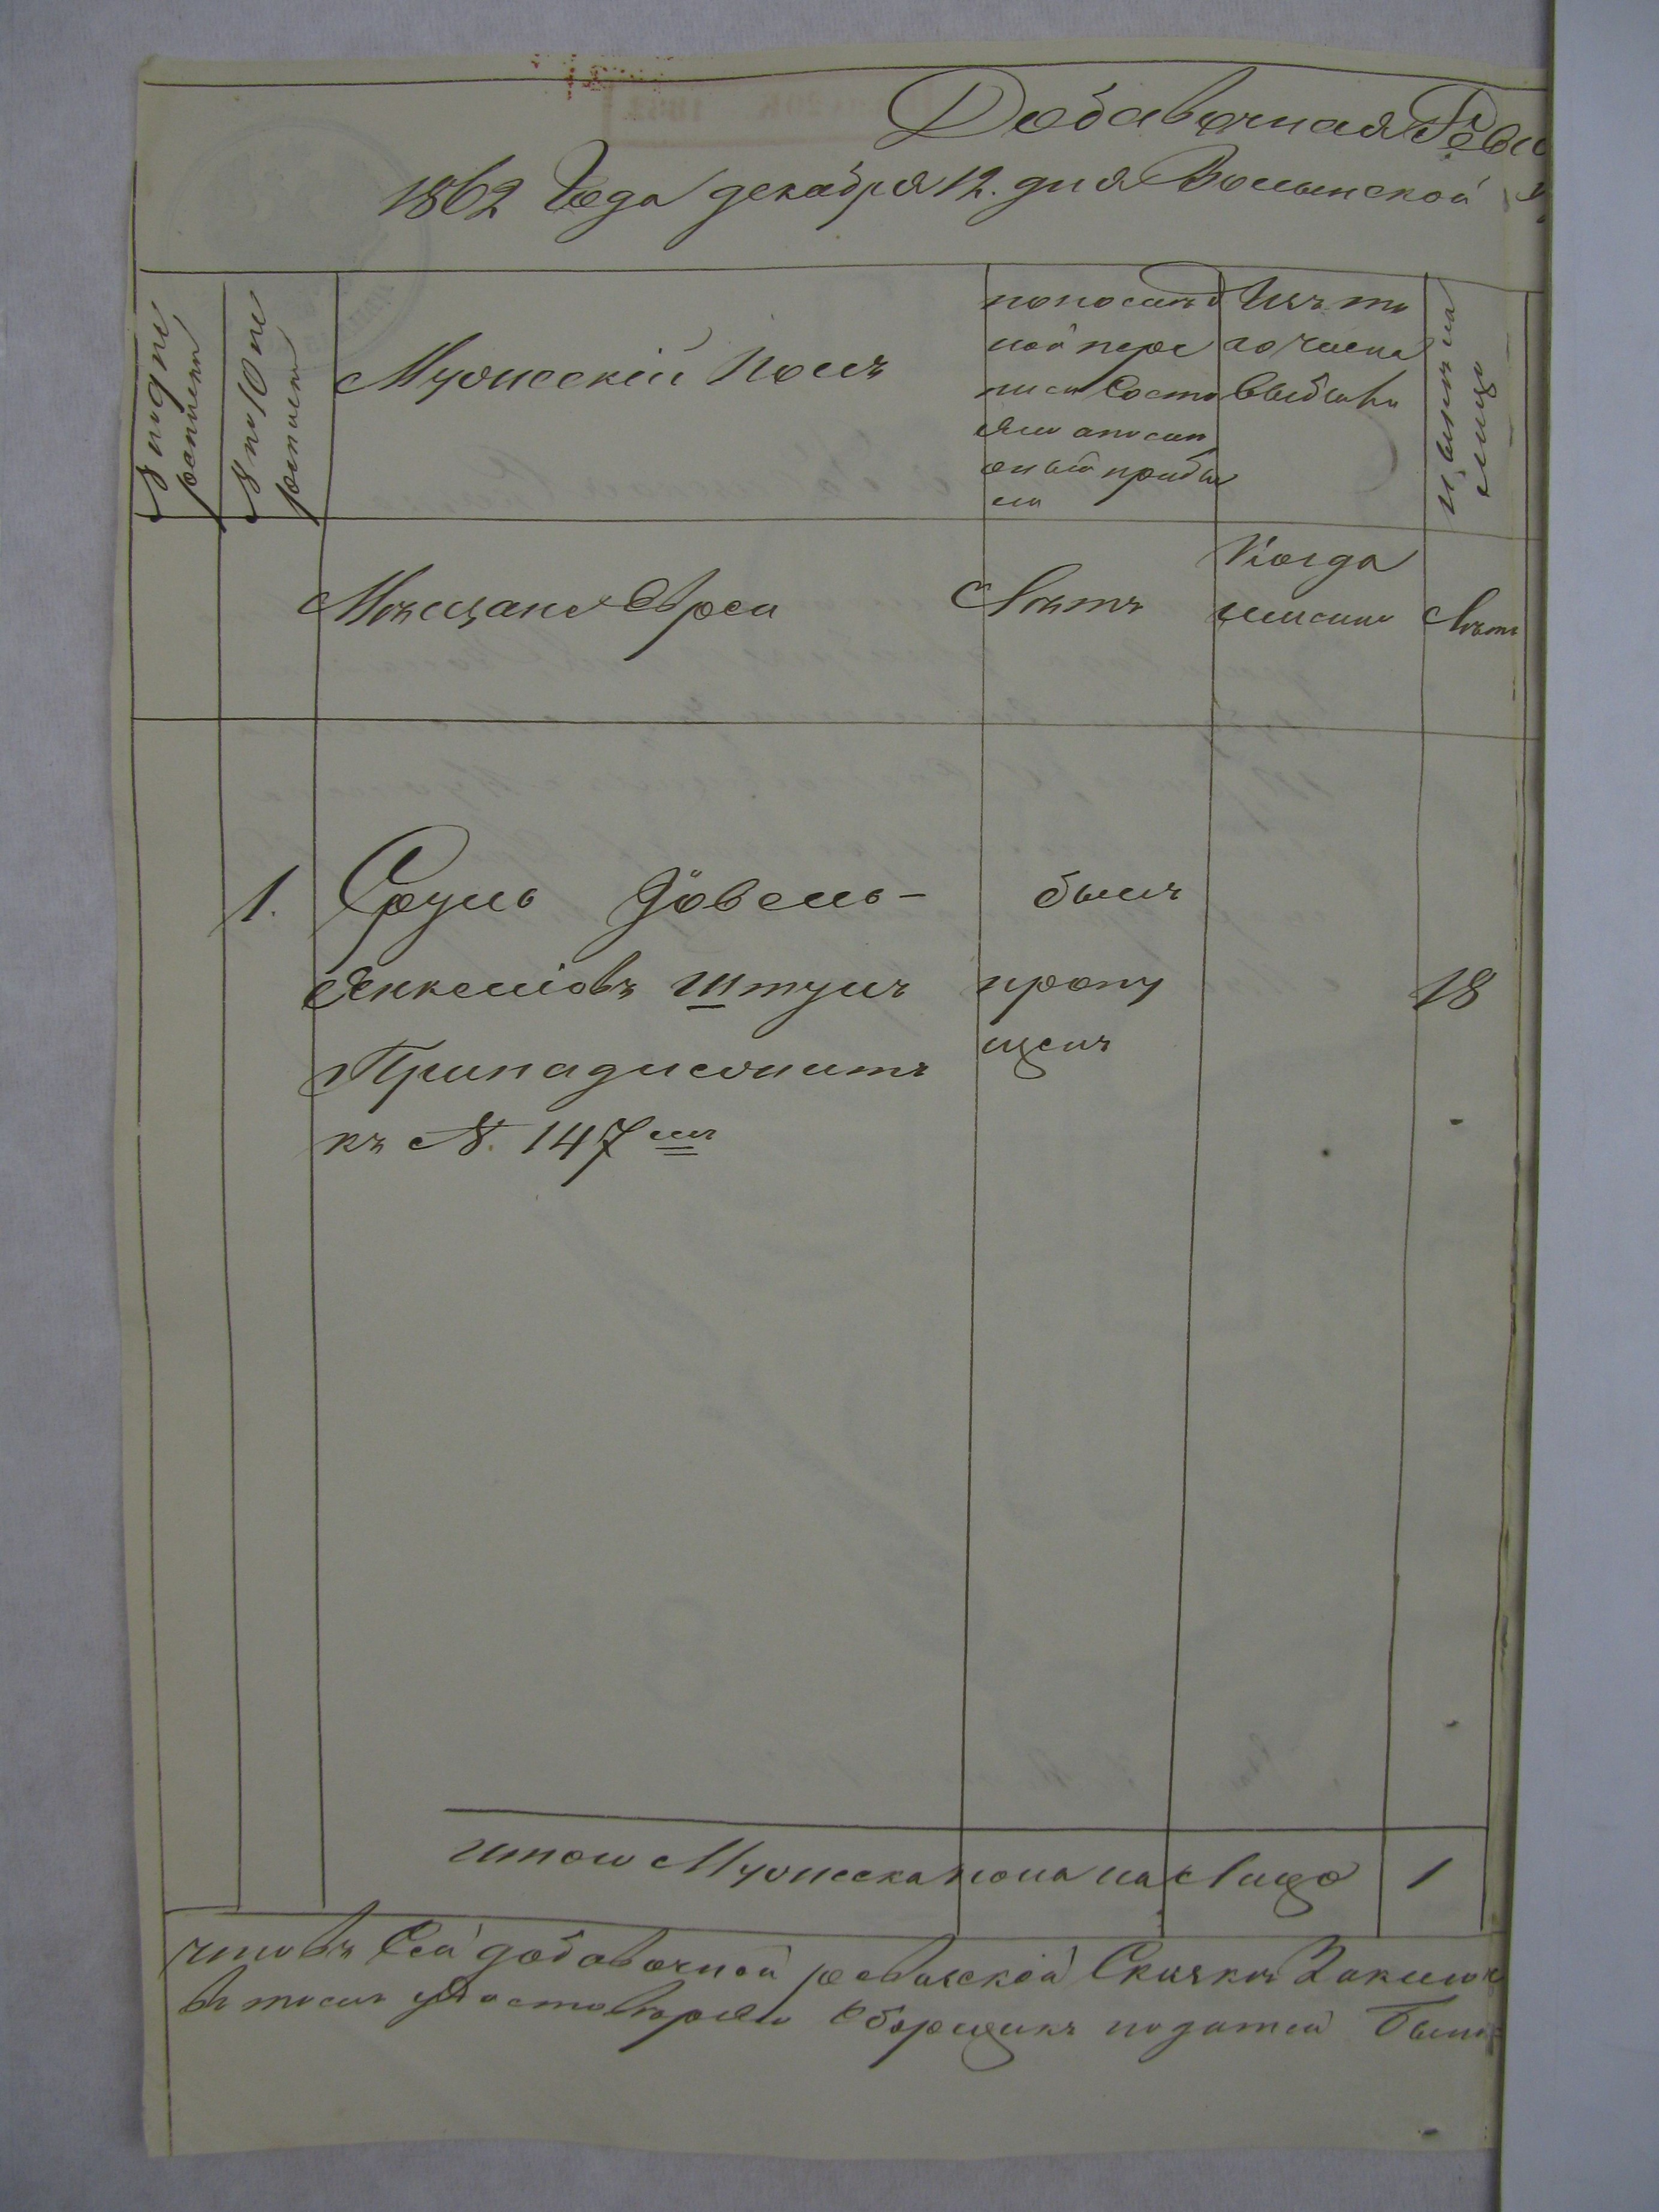 Добавочная Реви
1862 Года декабря 12. дня Волынской
№ по 9й ре
ревизіи
№ по 10 ре
ревизіи
Мужескій Полъ
по послѣд
ней пере
писи Состо
яло и
прибы
ло
Изъ то
го числа
выбыло
И нынѣ на
лицо
Мѣщане Евреи
Лѣтъ
Когда
именно
Лѣтъ
1.
Сруль Іовель-
Янкеліовъ Штулъ
Принадлежитъ
къ №. 147мъ
былъ
пропу
щенъ
18
итого Мужеска пола на Лицо
1
что въ Сей добавочной ревизской Сказкѣ Заключ
въ томъ удостовѣряю Сборщикъ податей